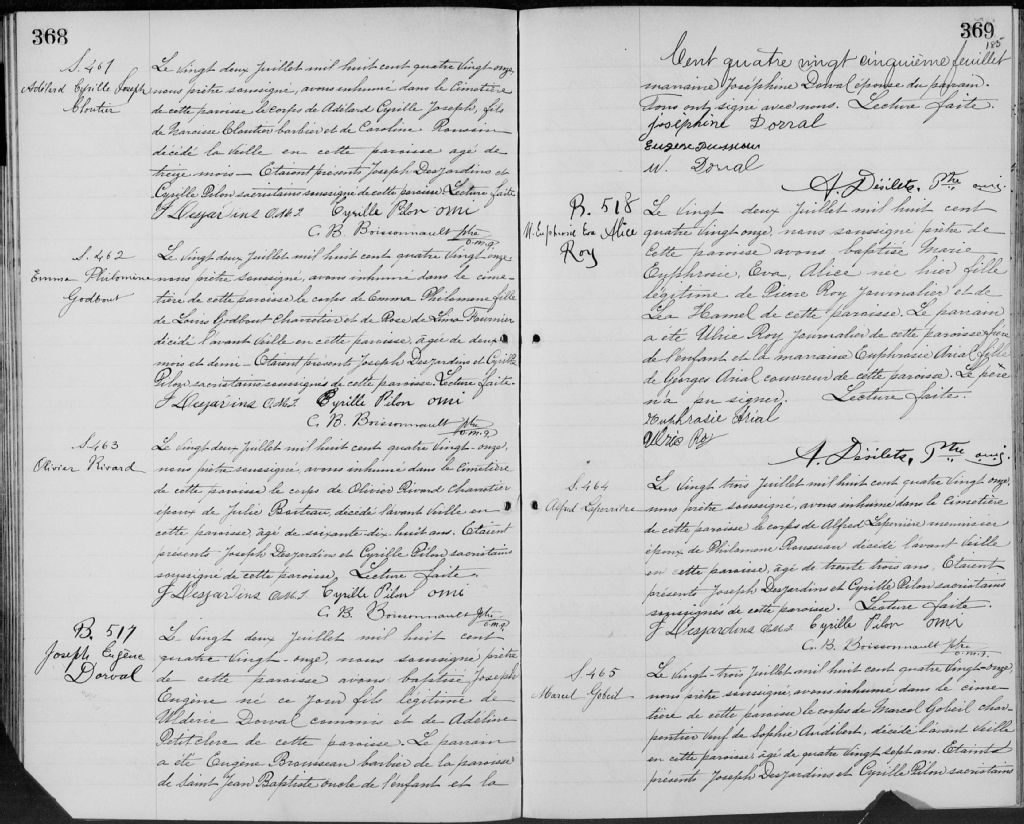 368
S. 461
Adélard Cyrille Joseph
Cloutier
Le vingt deux Juillet mil huit cent quatre vingt-onze,
nous prêtre soussigné, avons inhumé dans le Cimetière
de cette paroisse le corps de Adélard Cyrille Joseph, fils
de Narcisse Cloutier barbier et de Caroline
décédé la veille en cette paroisse agé de
treize mois — Etaient présents Joseph Desjardins et
Cyrille Pilon sacristains soussignés de cette paroisse. Lecture faite
J Desjardins O.M.I. Cyrille Pilon omi
C. B. Boissonnault ptre
o.m.i.
S. 462
Emma Philomène
Godbout
Le vingt deux Juillet mil huit cent quatre vingt-onze
nous prêtre soussigné, avons inhumé dans le cime-
tière de cette paroisse le corps de Emma Philomene fille
de Louis Godbout charretier et de Rose de Lima Fournier
décédé l'avant veille en cette paroisse, agée de deux
mois et demi — Etaient présents Joseph Desjardins et Cyrille
Pilon sacristains soussignés de cette paroisse. Lecture faite.
J Desjardins O.M.I. Cyrille Pilon omi
C. B. Boissonnault ptre
o.m.i.
S. 463
Olivier Rivard
Le vingt deux Juillet mil huit cent quatre vingt-onze,
nous prêtre soussigné, avons inhumé dans le cimetière
de cette paroisse le corps de Olivier Rivard charretier
époux de Julie Barteau, décédé l'avant veille en
cette paroisse, agé de soixante-dix huit ans. Etaient
présents Joseph Desjardins et Cyrille Pilon sacristains
soussigné de cette paroisse. Lecture faite.
J Desjardins O.M.I. Cyrille Pilon omi
C. B. Boissonnault ptre
o.m.i.
B. 517
Joseph Eugène
Dorval
Le vingt deux Juillet mil huit cent
quatre vingt-onze, nous soussigné prêtre
de cette paroisse avons baptisé Joseph
Eugène né ce jour fils légitime de
Ulderic Dorval commis et de Adéline
Petitclerc de cette paroisse. Le parrain
a été Eugène Brousseau barbier de la paroisse
de Saint Jean Baptiste oncle de l'enfant et la
369
185
Cent quatre vingt cinquième feuillet
marraine Joséphine Dorval épouse du parrain.
Tous ont signé avec nous. Lecture faite.
Josephine Dorval
Eugène Brousseau
U. Dorval
A. Désilets, Ptre omi.
B. 518
M. Euphrosie Eva Alice
Roy
Le vingt deux Juillet mil huit cent
quatre vingt onze, nous soussigné prêtre de
cette paroisse avons baptisé Marie
Euphrosie, Eva, Alice née hier fille
légitime de Pierre Roy Journalier et de
Léa Hamel de cette paroisse. Le parrain
a été Ulric Roy Journalier de cette paroisse frère
de l'enfant et la marraine Euphrasie Arial fille
de Georges Arial couvreur de cette paroisse. Le père
n'a su signer. Lecture faite.
Euphrasie Arial
Ulric Roy
A. Désilets, Ptre omi.
S. 464
Alfred Laperrière
Le vingt trois Juillet mil huit cent quatre vingt onze,
nous prêtre soussigné, avons inhumé dans le Cimetière
de cette paroisse le corps de Alfred Laperrière menuisier
époux de Philomene Rousseau décédé l'avant veille
en cette paroisse, agé de trente trois ans. Etaient
présents Joseph Desjardins et Cyrille Pilon sacristains
soussignés de cette paroisse. Lecture faite.
J Desjardins O.M.I. Cyrille Pilon omi
C. B. Boissonnault ptre
o.m.i.
S. 465
Marcel Gobeil
Le vingt-trois Juillet mil huit cent quatre vingt-onze,
nous prêtre soussigné, avons inhumé dans le cime-
tière de cette paroisse le corps de Marcel Gobeil char-
pentier veuf de Sophie Audibert, décédé l'avant veille
en cette paroisse, âgé de quatre vingt sept ans. Etaients
présents Joseph Desjardins et Cyrille Pilon sacristains